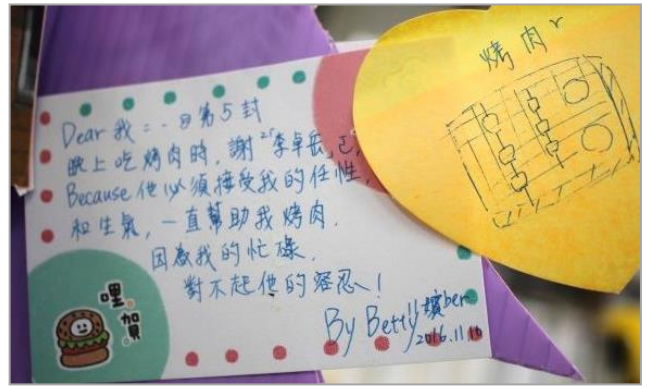 烤肉
Dear 我 = . . 日第5封
晚上吃烤肉時, 謝 李卓岳,
Because 他必須接受我的任性,
和生氣, 一直幫助我烤肉.
因為我的忙碌.
對不起他的容忍!
By Betty ber
2016.11.16
哩賀